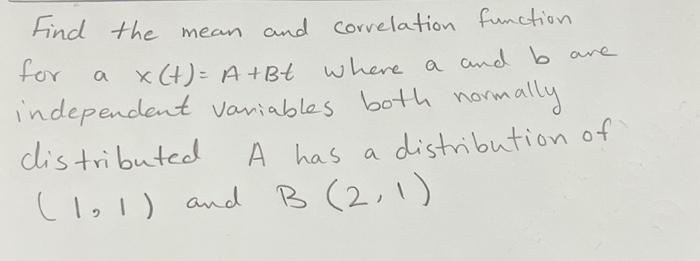 Find the mean and correlation function
for a x(t)= A+Bt where a and b are
independent variables both normally
distributed A has a distribution of
(1,1) and B (2,1)